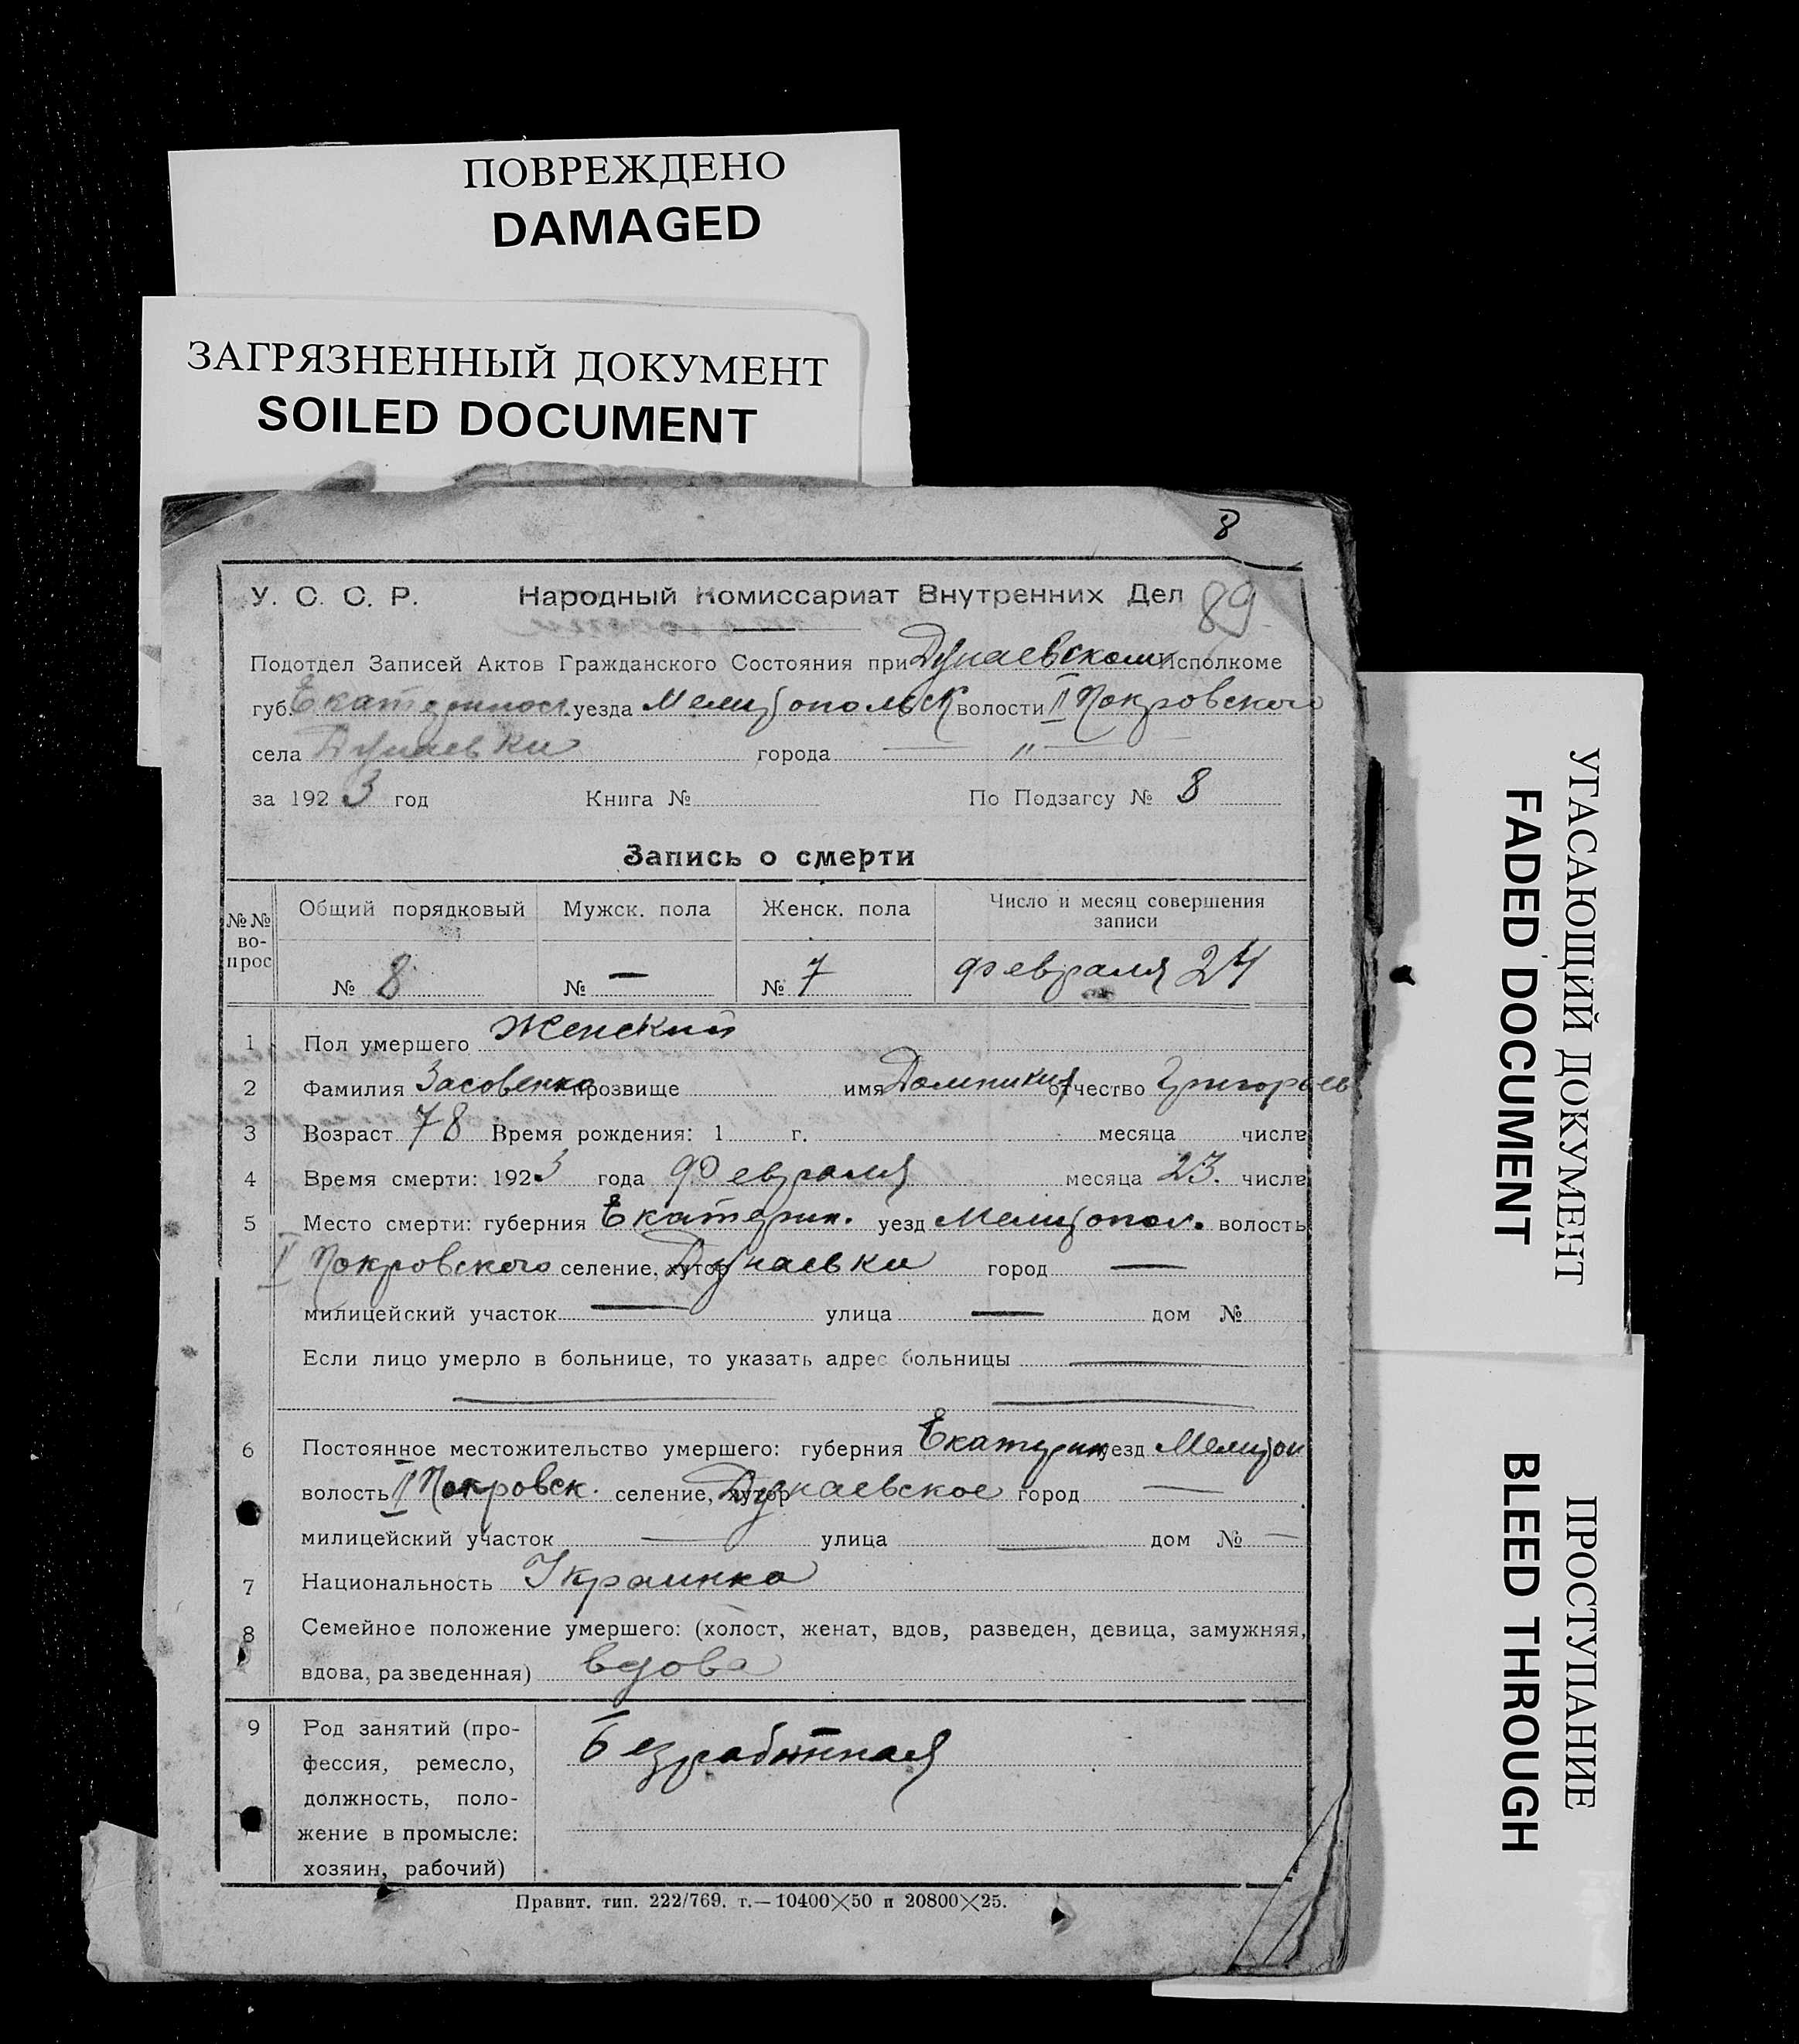 ПОВРЕЖДЕНО
DAMAGED
ЗАГРЯЗНЕННЫЙ ДОКУМЕНТ
SOILED DOCUMENT
8
У. С. С. Р. Народный Комиссариат Внутренних Дел 89
Подотдел Записей Актов Гражданского Состояния при Дунаевском Исполкоме
губ. Екатериносл. уезда Мелитопольск волости II Покровского
села Дунаевки города — " —
за 1923 год Книга № По Подзагсу № 8
Запись о смерти
№№ во-прос Общий порядковый Мужск. пола Женск. пола Число и месяц совершения записи
№ 8 № — № 7 февраля 24
1 Пол умершего Женский
2 Фамилия Засовенко прозвище имя Домникия отчество Григорьев
3 Возраст 78 Время рождения: 1 г. месяца числа
4 Время смерти: 1923 года Февраля месяца 23. числа
5 Место смерти: губерния Екатерин. уезд Мелитопол. волость
II Покровского селение, хутор Дунаевки город —
милицейский участок — улица — дом №
Если лицо умерло в больнице, то указать адрес больницы —
6 Постоянное местожительство умершего: губерния Екатерин уезд Мелитоп
волость II Покровск. селение, хутор Дунаевское город —
милицейский участок — улица — дом № —
7 Национальность Украинка
8 Семейное положение умершего: (холост, женат, вдов, разведен, девица, замужняя,
вдова, разведенная) вдова
9 Род занятий (про-
фессия, ремесло,
должность, поло-
жение в промысле:
хозяин, рабочий)
Безработная
Правит. тип. 222/769. т.—10400×50 и 20800×25.
УГАСАЮЩИЙ ДОКУМЕНТ
FADED DOCUMENT
ПРОСТУПАНИЕ
BLEED THROUGH